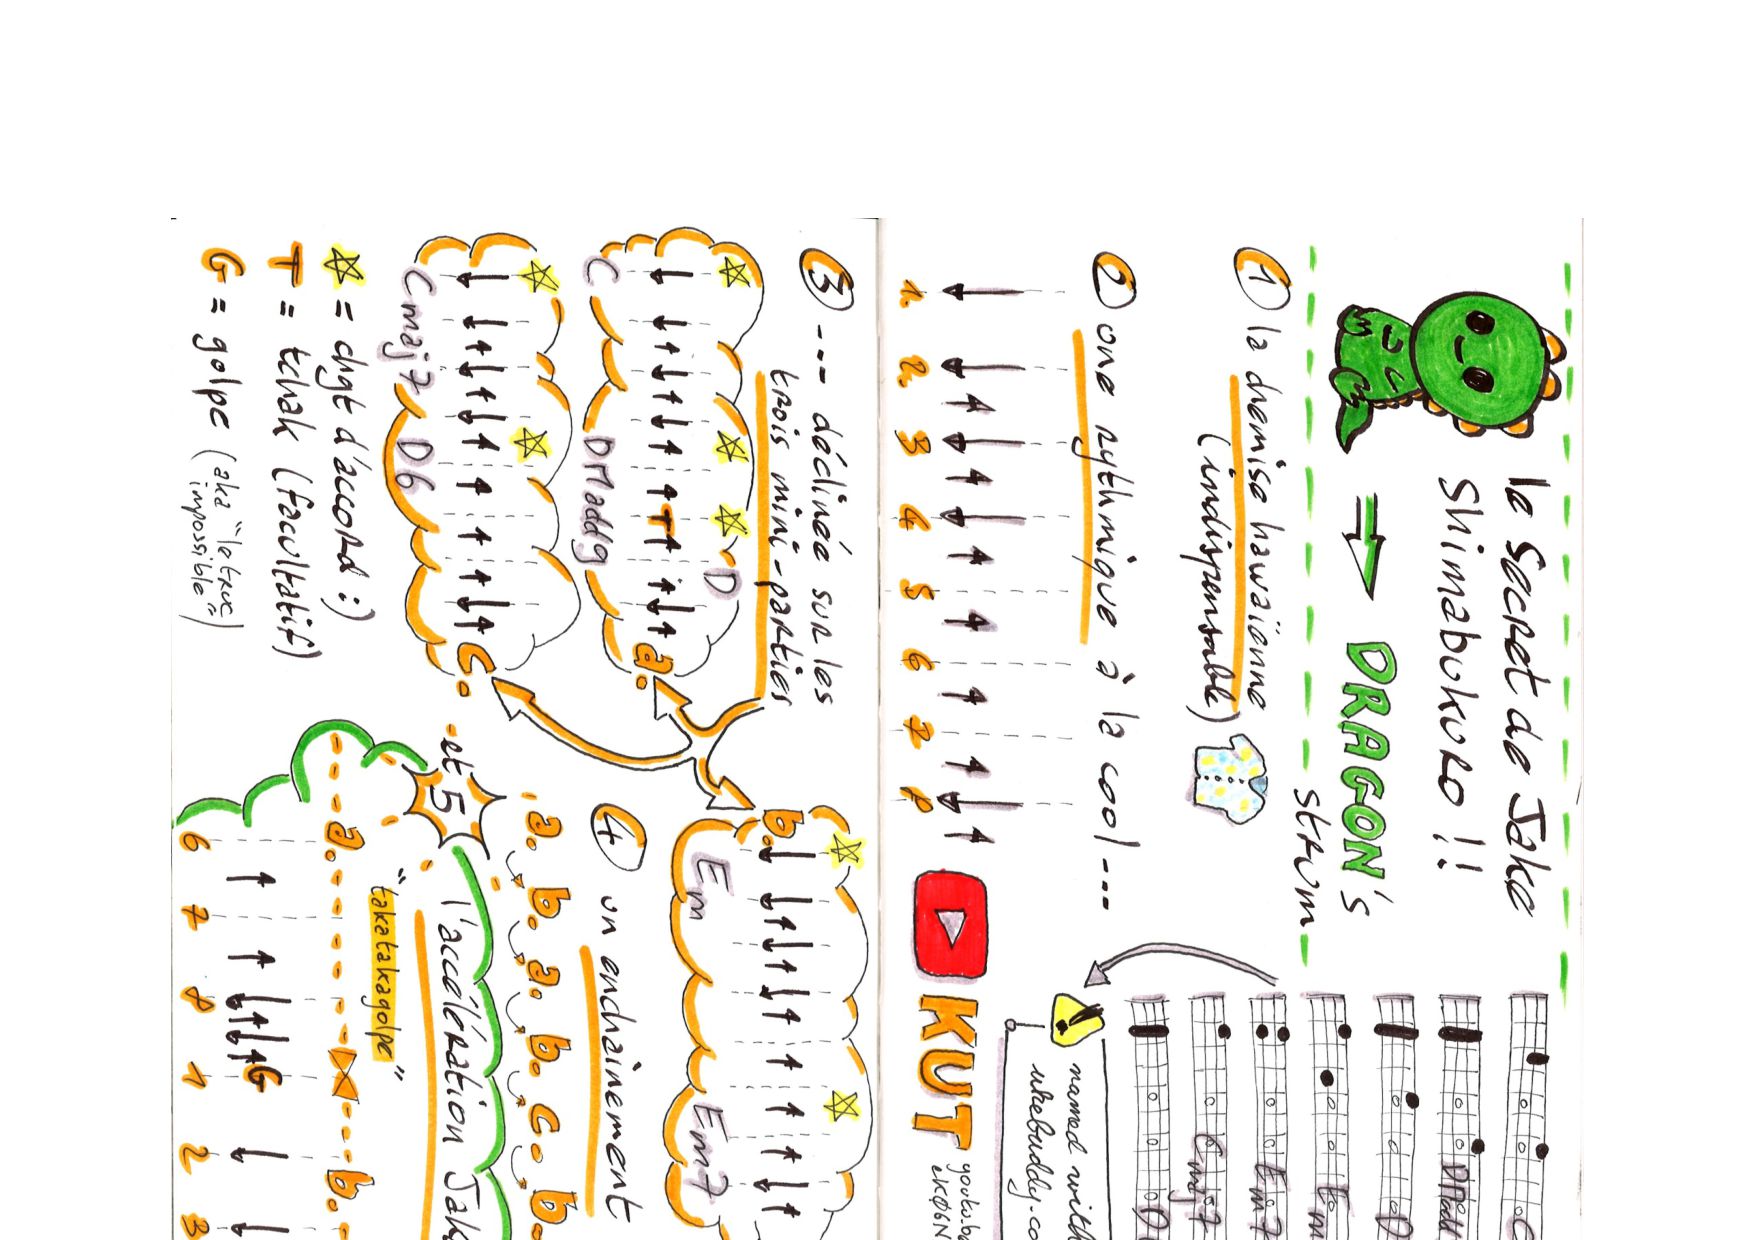 le Secret de Jake
Shimabukuro !!
DRAGON's
strum
① la chemise hawaïenne
(indispensable)
② une rythmique à la cool ---
1. 2. 3 4 5 6 7 8
C
D
Em
Em7
Cmaj7
D
named with
KUT
③ --- déclinée sur les
trois mini-parties
a.
C DMadd9 D
T
b.
Em Em7
c.
Cmaj7 D6
☆ = chgt d'accord :)
T = tchak (facultatif)
G = golpe (aka "le truc
impossible")
④ un enchainement
a. b. a. b. c. b.
- et 5
l'accélération Jak
"takatakagolpe"
a. b.
G
6 7 8 1 2 3